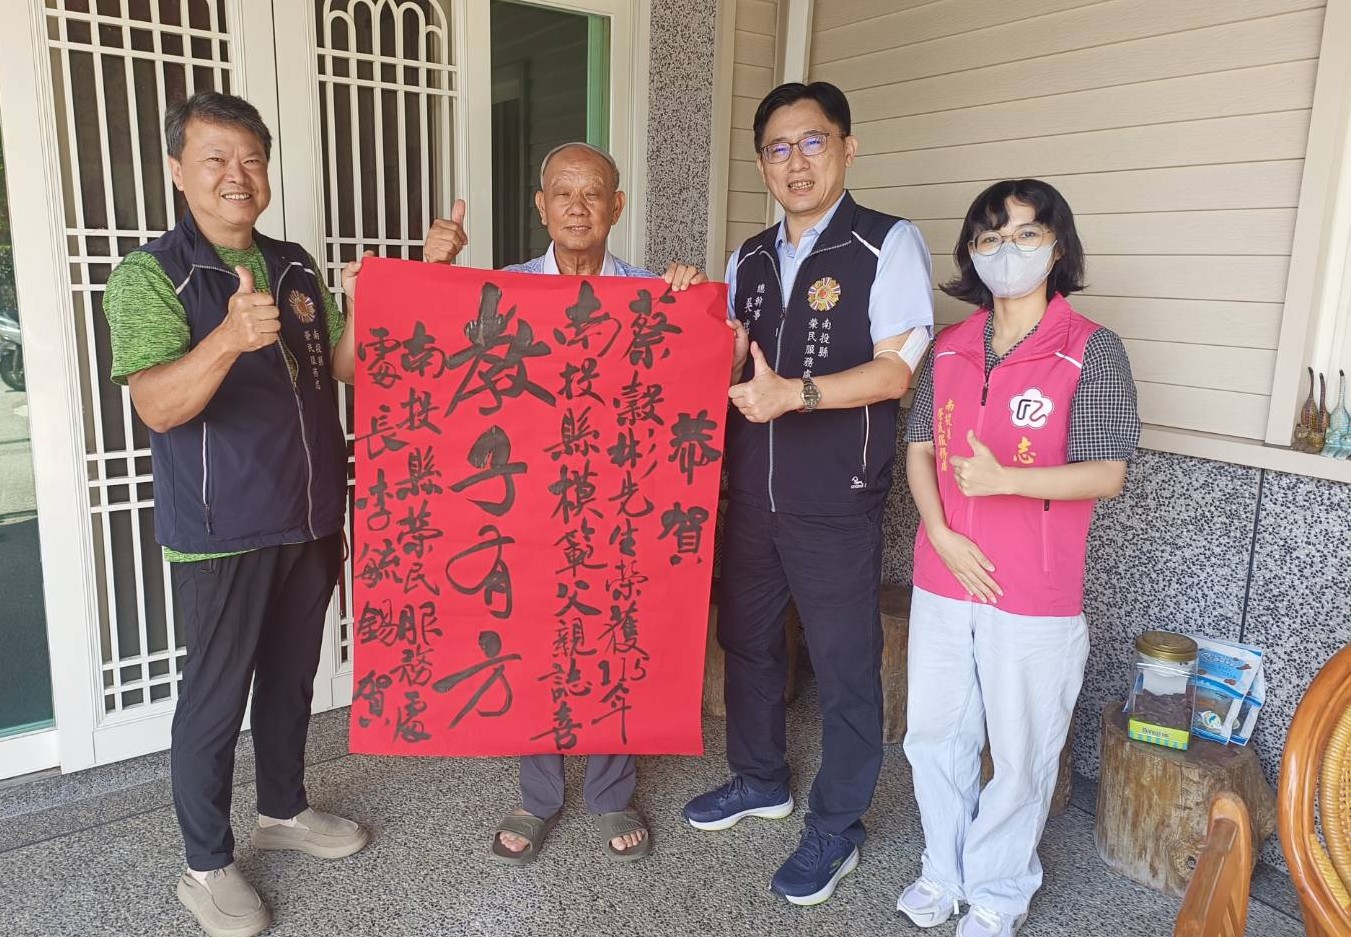 恭賀
蔡穀彬先生榮獲115年
南投縣模範父親誌喜
教子有方
南投縣榮民服務處
處長李毓錫賀
南投縣
榮民服務處
總幹事
吳
南投縣
榮民服務處
志
南投縣
榮民服務處